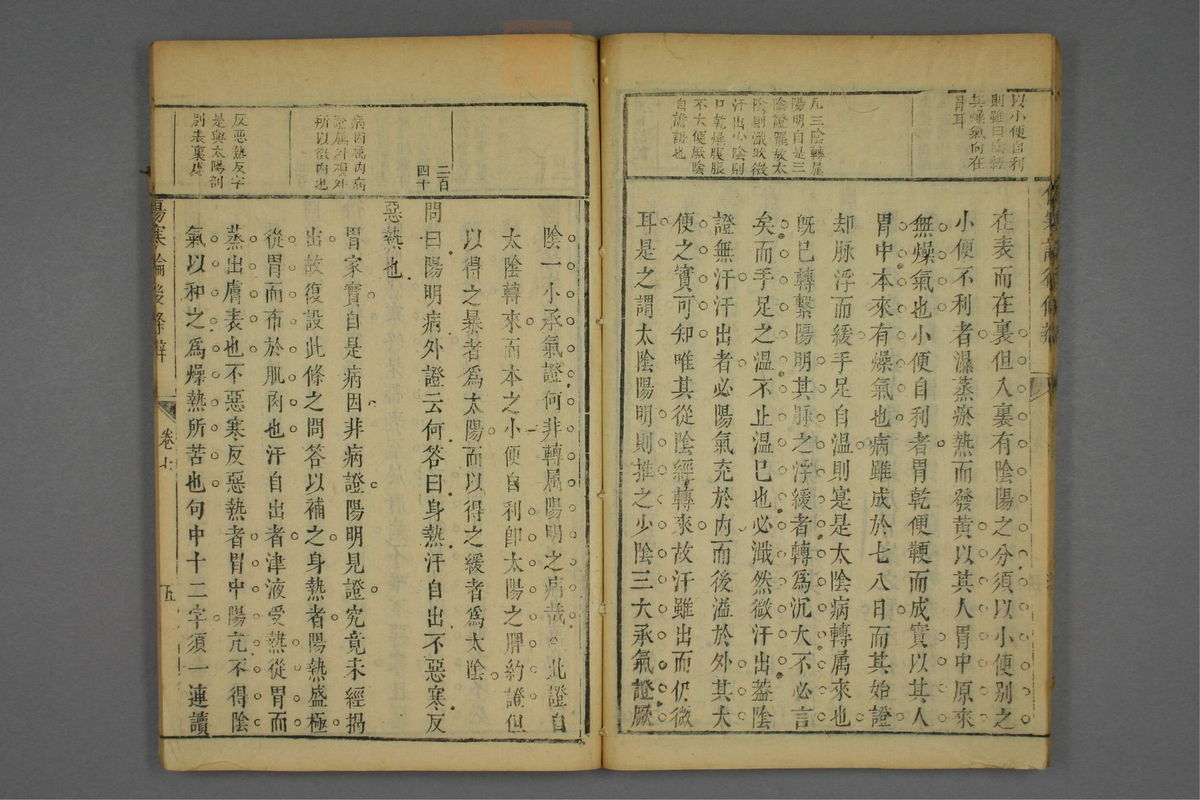 以小便自利
則雖曰陰經
其燥氣尚在
胃耳
凡三陰轉屬
陽明自是三
陰證罷故太
陰則濈然微
汗出少陰則
口乾燥腹脹
不大便厥陰
自譫語也
在表而在裏但入裏有陰陽之分須以小便别之
小便不利者濕蒸瘀熱而發黄以其人胃中原來
無燥氣也小便自利者胃乾便鞕而成實以其人
胃中本來有燥氣也病雖成於七八日而其始證
却脉浮而緩手足自温則寔是太陰病轉属來也
既已轉繫陽明其脉之浮緩者轉爲沉大不必言
矣而手足之温不止温已也必濈然微汗出蓋陰
證無汗汗出者必陽氣充於内而後溢於外其大
便之實可知唯其從陰經轉來故汗雖出而仍微
耳是之謂太陰陽明則推之少陰三大承氣證厥
二百
四十
病因属内病
證属外項外
所以微内也
反惡熱反字
是與太陽剖
别表裏處
陰一小承氣證何非轉属陽明之病哉此證自
太陰轉來而本之小便自利卽太陽之脾約證但
以得之暴者爲太陽而以得之緩者爲太陰
問曰陽明病外證云何答曰身熱汗自出不惡寒反
惡熱也
胃家實自是病因非病證陽明見證究竟未經揭
出故復設此條之問答以補之身熱者陽熱盛極
從胃而布於肌肉也汗自出者津液受熱從胃而
蒸出膚表也不惡寒反惡熱者胃中陽亢不得陰
氣以和之爲燥熱所苦也句中十二字須一連讀
傷寒論後條辨
卷七
五